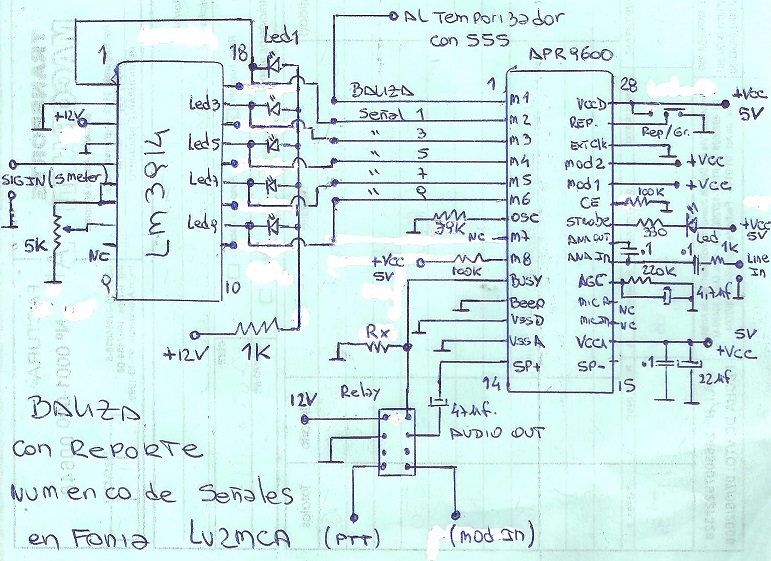 AL Temporizador
con 555
APR9600
Led1
1
18
1
28
+12V
Led3
Led5
Led7
Led9
LM3914
SIGIN (Smeter)
5K
NC
9
10
+12V
1K
BALIZA
Señal 1
" 3
" 5
" 7
" 9
M1
M2
M3
M4
M5
M6
OSC
M7
M8
BUSY
Beep
VSSD
VSSA
SP+
14
39K
NC
+Vcc
5V
100K
VCCD
REP.
EXTClk
Mod2
Mod1
CE
STROBE
ANA OUT
ANA IN
AGC
MIC R
MIC IN
VCCA
SP-
15
+Vcc
5V
Rep/Gr.
+Vcc
+Vcc
100K
330
Led
+Vcc
5V
.1
.1
1K
Line
In
220K
4,7uf
NC
NC
5V
+Vcc
.1
22uf
Rx
Relay
12V
47uf.
AUDIO OUT
(PTT)
(Mod In)
BALIZA
con REPORTE
Numerico de Señales
en Fonia LU2MCA